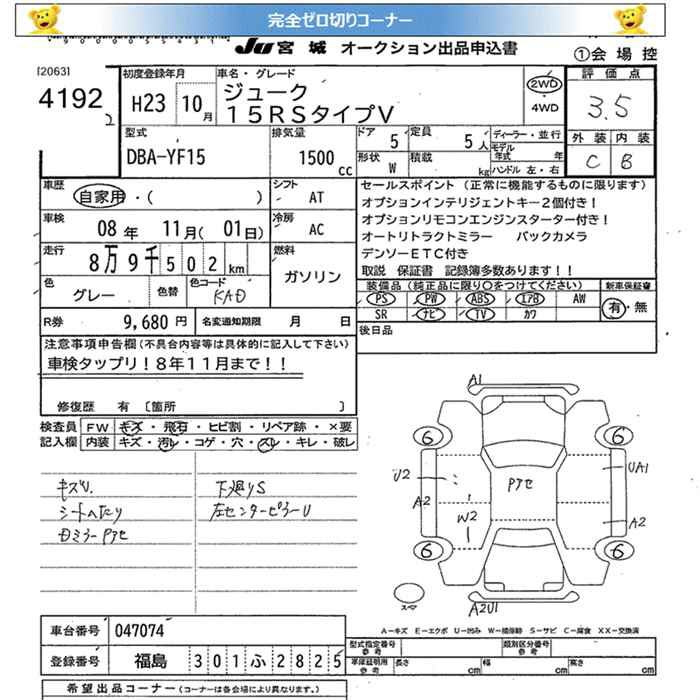 完全ゼロ切りコーナー
JU 宮城 オークション出品申込書
①会場控
[2063]
4192
2
初度登録年月
H23 10月
車名・グレード
ジューク
15RSタイプV
2WD
4WD
評価点
3.5
外装 内装
C B
型式
DBA-YF15
排気量
1500cc
ドア 5
定員 5人
形状 W
積載 kg
ディーラー・並行
モデル年式 年
ハンドル 左・右
車歴
自家用・( )
シフト
AT
車検
08年 11月(01日)
冷房
AC
走行
8万9千502km
燃料
ガソリン
色
グレー
色替
色コード
KAD
R券 9,680円
名変通知期限 月 日
セールスポイント (正常に機能するものに限ります)
オプションインテリジェントキー2個付き!
オプションリモコンエンジンスターター付き!
オートリトラクトミラー バックカメラ
デンソーETC付き
取説 保証書 記録簿多数あります!!
装備品 (純正品に限り○をつけてください)
PS PW ABS エアB AW
SR ナビ TV カワ
新車保証書
有・無
後日品
注意事項申告欄(不具合内容等は具体的に記入して下さい)
車検タップリ!8年11月まで!!
修復歴 有 〔箇所 〕
検査員記入欄
FW キズ・飛石・ヒビ割・リペア跡・×要
内装 キズ・汚レ・コゲ・穴・スレ・キレ・破レ
キズU.
シートへたり
下廻りS
左センターピラーU
A1
6
6
U2
UA1
A2
W2
アセ
A2
6
6
A2U1
スペア
A-キズ E-エクボ U-凹み W-補修跡 S-サビ C-腐食 XX-交換済
車台番号 047074
登録番号 福島 301ふ2825
型式指定番号 参考
類別区分番号 参考
車庫証明用 参考
長さ cm
幅 cm
高さ cm
希望出品コーナー (コーナーは各会場により異なります。)